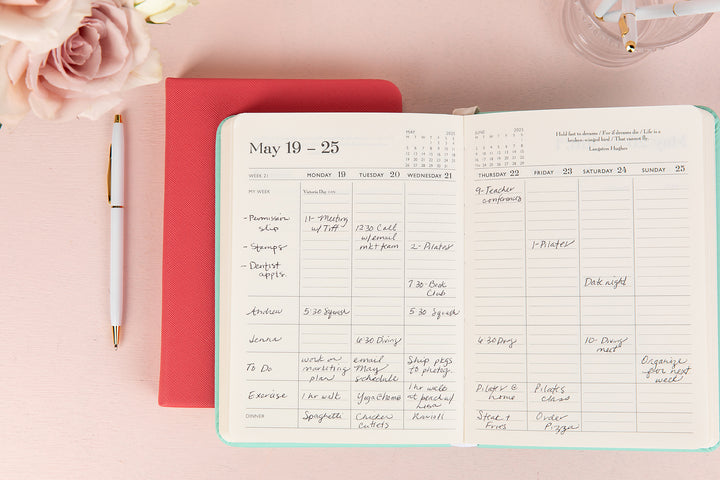 May 19 – 25
MAY 2025
JUNE 2025
Hold fast to dreams / For if dreams die / Life is a
broken-winged bird / That cannot fly.
Langston Hughes
WEEK 21 MONDAY 19 TUESDAY 20 WEDNESDAY 21
THURSDAY 22 FRIDAY 23 SATURDAY 24 SUNDAY 25
MY WEEK
Victoria Day
- Permission
slip
- Stamps
- Dentist
appts.
11- Meeting
w/ Tiff
12:30 Call
w/ email
mkt team
2- Pilates
7:30- Book
Club
9-Teacher
conferences
1-Pilates
Date night
Andrew
5:30 Squash
5:30 Squash
Jenna
6:30 Diving
6:30
10- Diving
meet
To Do
work on
marketing
plan
email
May
schedule
Ship pkgs
to photog.
Organize
for next
week
Exercise
1 hr walk
Yoga@home
1 hr walk
at beach w/
Pilates @
home
Pilates
class
DINNER
Spaghetti
Chicken
Cutlets
Ravioli
Steak +
Fries
Order
Pizza